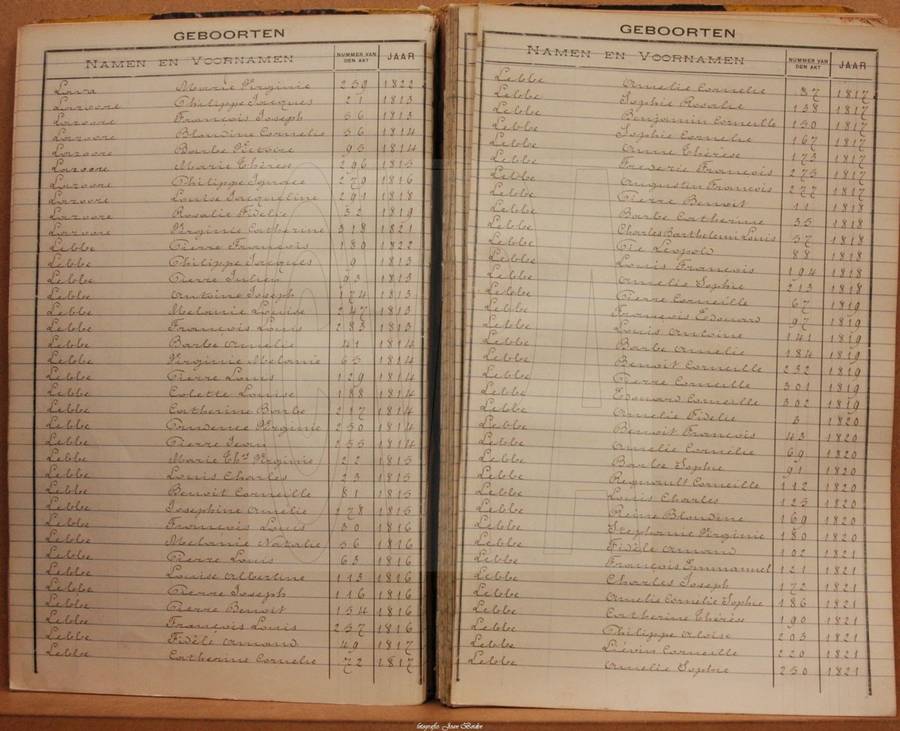 GEBOORTEN
NAMEN EN VOORNAMEN NUMMER VAN DEN AKT JAAR
Lava Marie Virginie 259 1822
Lazoore Philippe Jacques 21 1813
Lazoore François Joseph 56 1813
Lazoore Blandine Cornelie 56 1814
Lazoore Barbe Victoire 95 1814
Lazoore Marie Thérèse 296 1815
Lazoore Philippe Ignace 279 1816
Lazoore Louise Jacqueline 291 1818
Lazoore Rosalie Fidelie 32 1819
Lazoore Virginie Catherine 318 1821
Lebbe Pierre François 180 1822
Lebbe Philippe Jacques 9 1813
Lebbe Pierre Julien 93 1813
Lebbe Antoine Joseph 174 1813
Lebbe Melanie Louise 247 1813
Lebbe François Louis 283 1813
Lebbe Barbe Amelie 41 1814
Lebbe Virginie Melanie 65 1814
Lebbe Pierre Louis 129 1814
Lebbe Colette Louise 188 1814
Lebbe Catherine Barbe 217 1814
Lebbe Prudence Virginie 250 1814
Lebbe Pierre Jean 255 1814
Lebbe Marie Ths Virginie 22 1815
Lebbe Louis Charles 23 1815
Lebbe Benoit Corneille 81 1815
Lebbe Josephine Amelie 178 1815
Lebbe François Louis 30 1816
Lebbe Melanie Natalie 56 1816
Lebbe Pierre Louis 63 1816
Lebbe Louise Albertine 113 1816
Lebbe Pierre Joseph 116 1816
Lebbe Pierre Benoit 154 1816
Lebbe François Louis 257 1816
Lebbe Fidèle Amand 49 1817
Lebbe Catherine Cornelie 72 1817
GEBOORTEN
NAMEN EN VOORNAMEN NUMMER VAN DEN AKT JAAR
Lebbe Amelie Cornelie 87 1817
Lebbe Sophie Rosalie 138 1817
Lebbe Benjamin Corneille 150 1817
Lebbe Sophie Cornelie 167 1817
Lebbe Anne Thérèse 173 1817
Lebbe Frederic François 275 1817
Lebbe Augustin François 277 1817
Lebbe Pierre Benoit 11 1818
Lebbe Barbe Catherine 35 1818
Lebbe Charles Barthelemi Louis 57 1818
Lebbe Pie Leopold 88 1818
Lebbe Louis François 194 1818
Lebbe Amelie Sophie 213 1818
Lebbe Pierre Corneille 67 1819
Lebbe François Edouard 97 1819
Lebbe Louis Antoine 141 1819
Lebbe Barbe Amelie 184 1819
Lebbe Benoit Corneille 232 1819
Lebbe Pierre Corneille 301 1819
Lebbe Edouard Corneille 302 1819
Lebbe Amelie Fidelie 3 1820
Lebbe Benoit François 43 1820
Lebbe Amelie Cornelie 69 1820
Lebbe Barbe Sophie 91 1820
Lebbe Regnault Corneille 112 1820
Lebbe Louis Charles 125 1820
Lebbe Reine Blandine 169 1820
Lebbe Stephanie Virginie 180 1820
Lebbe Fidèle Amand 102 1821
Lebbe François Emmanuel 121 1821
Lebbe Charles Joseph 172 1821
Lebbe Amelie Cornelie Sophie 186 1821
Lebbe Catherine Thérèse 190 1821
Lebbe Philippe Aloise 203 1821
Lebbe Liévin Corneille 220 1821
Lebbe Amelie Sophie 250 1821
fotografie: Joan Bardez